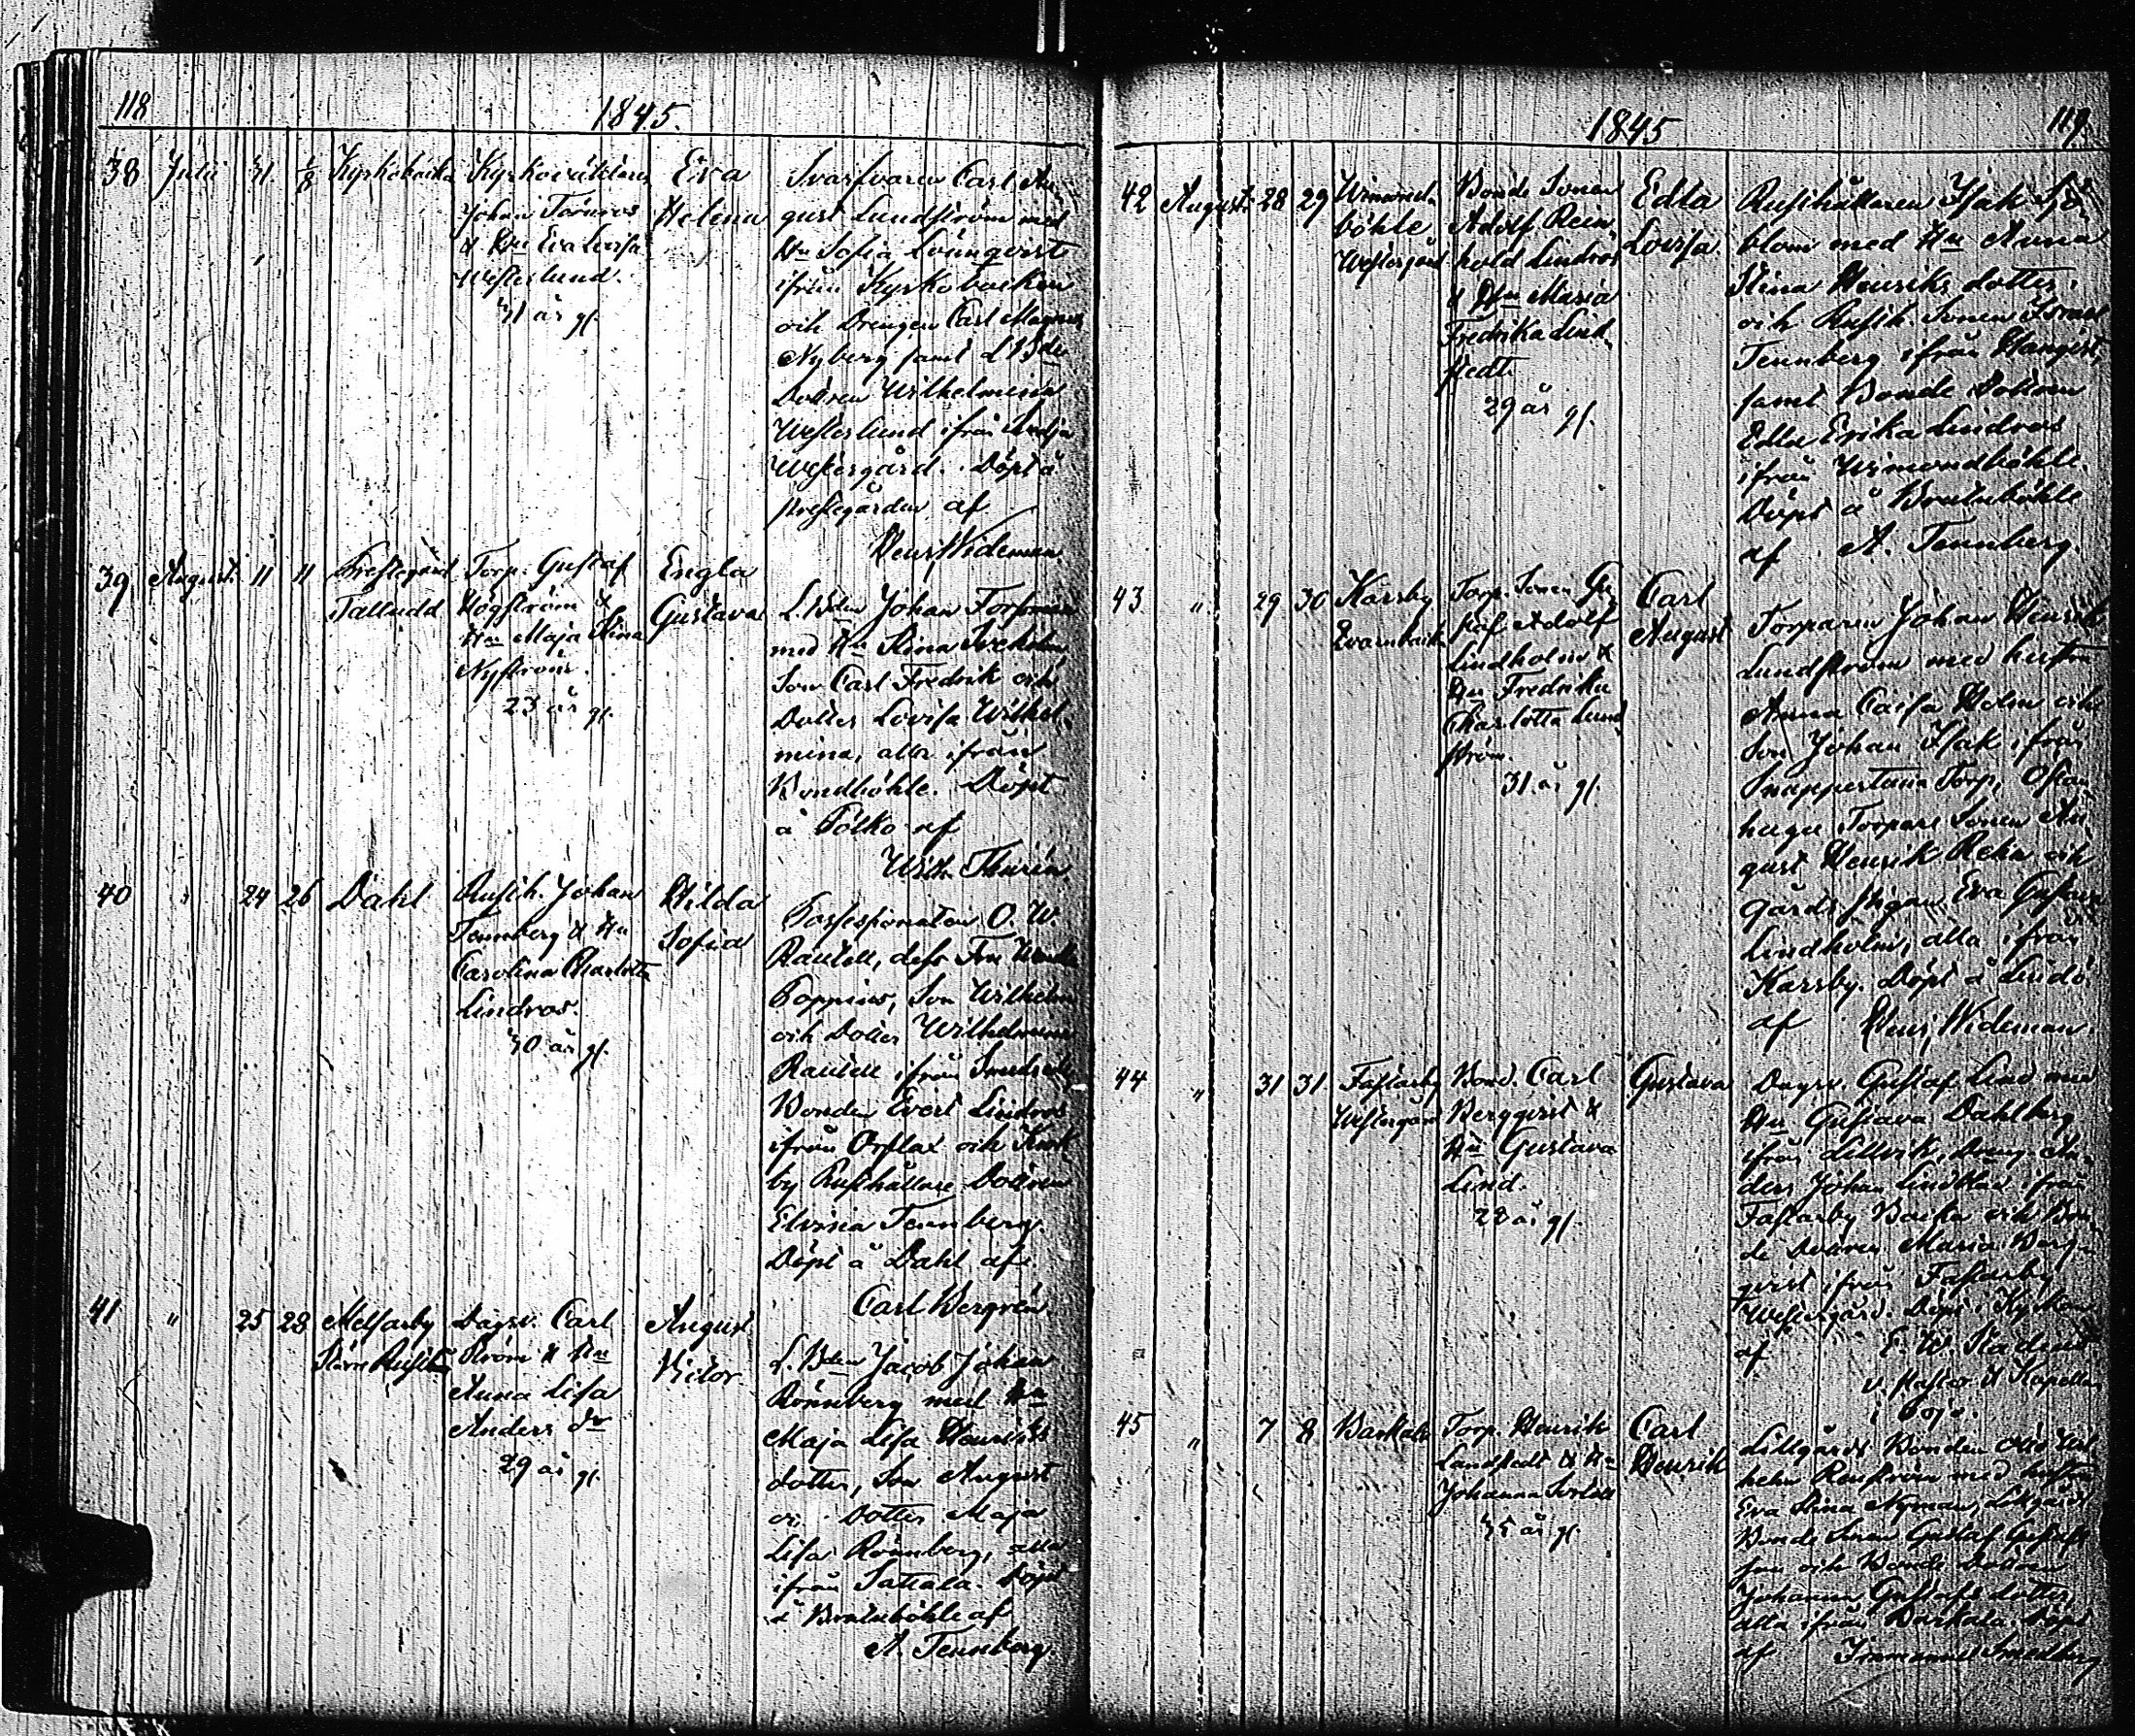 118
1845.
38 Julii 31 1/8 Kyrkobacka
Kyrkoväktaren
Johan Törnroos
& Hu Eva Lovisa
Westerlund.
31 år gl.
Eva
Helena
Svarfvaren Carl Au-
gust Lundström med
Hu Sofia Lönnqvist
ifrån Kyrkobacken
och Drengen Carl Magnus
Nyberg samt
Dottren Wilhelmina
Westerlund ifrån
Westergård. Döpt å
Prestegården af
Henr. Wideman.
39 August. 11 11 Prestegård
Talludd
Torp. Gustaf
Högström &
Hu Maja Stina
Nyström.
23 år gl.
Engla
Gustava
L. Bden Johan Forsman
med Hu Stina
Son Carl Fredrik och
Dotter Lovisa Wilhel-
mina, alla ifrån
Bondböhle. Döpt
å Tolko af
Wilh. Thurén.
40 " 24 26 Dahl
Rusth. Johan
Tennberg & Hu
Carolina Charlotta
Lindros.
30 år gl.
Hilda
Sofia
Possessionaten O. W.
dess Fru
Poppius, Son Wilhelm
och Dotter Wilhelmina
ifrån
Bonden Evert Lindros
ifrån Orslax och
by Rusthållare Dottren
Elvina Tennberg.
Döpt å Dahl af
Carl Bergrén.
41 " 25 28 Melsarby
Dagsv. Carl
Ström & Hu
Anna Lisa
Anders dr
29 år gl.
August
Victor
L. Bden Jacob Johan
Rönnberg med Hu
Maja Lisa Henriks
dotter, Son August
o. Dotter Maja
Lisa Rönnberg, alla
ifrån Sattala. Döpt
å Brataböhle af
A. Tennberg.
1845
119
42 August. 28 29 Wimond-
böhle
Westergård
Bonde Sonen
Adolf Rein-
hold Lindros
& Hu Maria
Fredrika Lind-
stedt.
29 år gl.
Edla
Lovisa.
Rusthållaren Isak Sjö-
blom med Hu Anna
Stina Henriks dotter,
och Rusth. Sonen
Tennberg ifrån Hangist,
samt Bonde Dottren
Edla Erika Lindros
ifrån Wimondböhle.
Döpt å Brataböhle
af A. Tennberg.
43 " 29 30 Karsby
Qvarnbacka
Torp. Sonen Gu-
staf Adolf
Lindholm &
Hu Fredrika
Charlotta Lund-
ström.
31 år gl.
Carl
August
Torparen Johan Henrik
Lundström med hustru
Anna Caisa Holm och
Son Johan Isak ifrån
Snappertuna Torp,
Torpare Sonen Au-
gust Henrik Rehn och
gårds pigan Eva Gustava
Lindholm, alla ifrån
Karsby. Döpt å Lindö
af Henr. Wideman.
44 " 31 31 Fastarby
Westergård
Bond. Carl
Bergqvist &
Hu Gustava
Lind.
28 år gl.
Gustava
Dagsv. Gustaf Lind med
Hu Gustava Dahlberg
ifrån Lillvik, Dreng. An-
ders Johan Lindblad ifrån
Fastarby Backa och Bon-
de Dottren Maria Berg-
qvist ifrån Fastarby
Westergård. Döpt i Kyrkan
af E. W. Stadius
v. Pastor & Kapellan
i Pojo.
45 " 7 8 Barkala
Torp. Henrik
Landstedt & Hu
Johanna
35 år gl.
Carl
Henrik
Lillgårds Bonden
Renström med hustru
Eva Stina Nyman, Lillgårds
Bonde Sonen Gustaf Gustafs-
son och Bonde Dottren
Johanna Gustafs dotter,
alla ifrån Barkala. Döpt
af Immanuel Smedberg